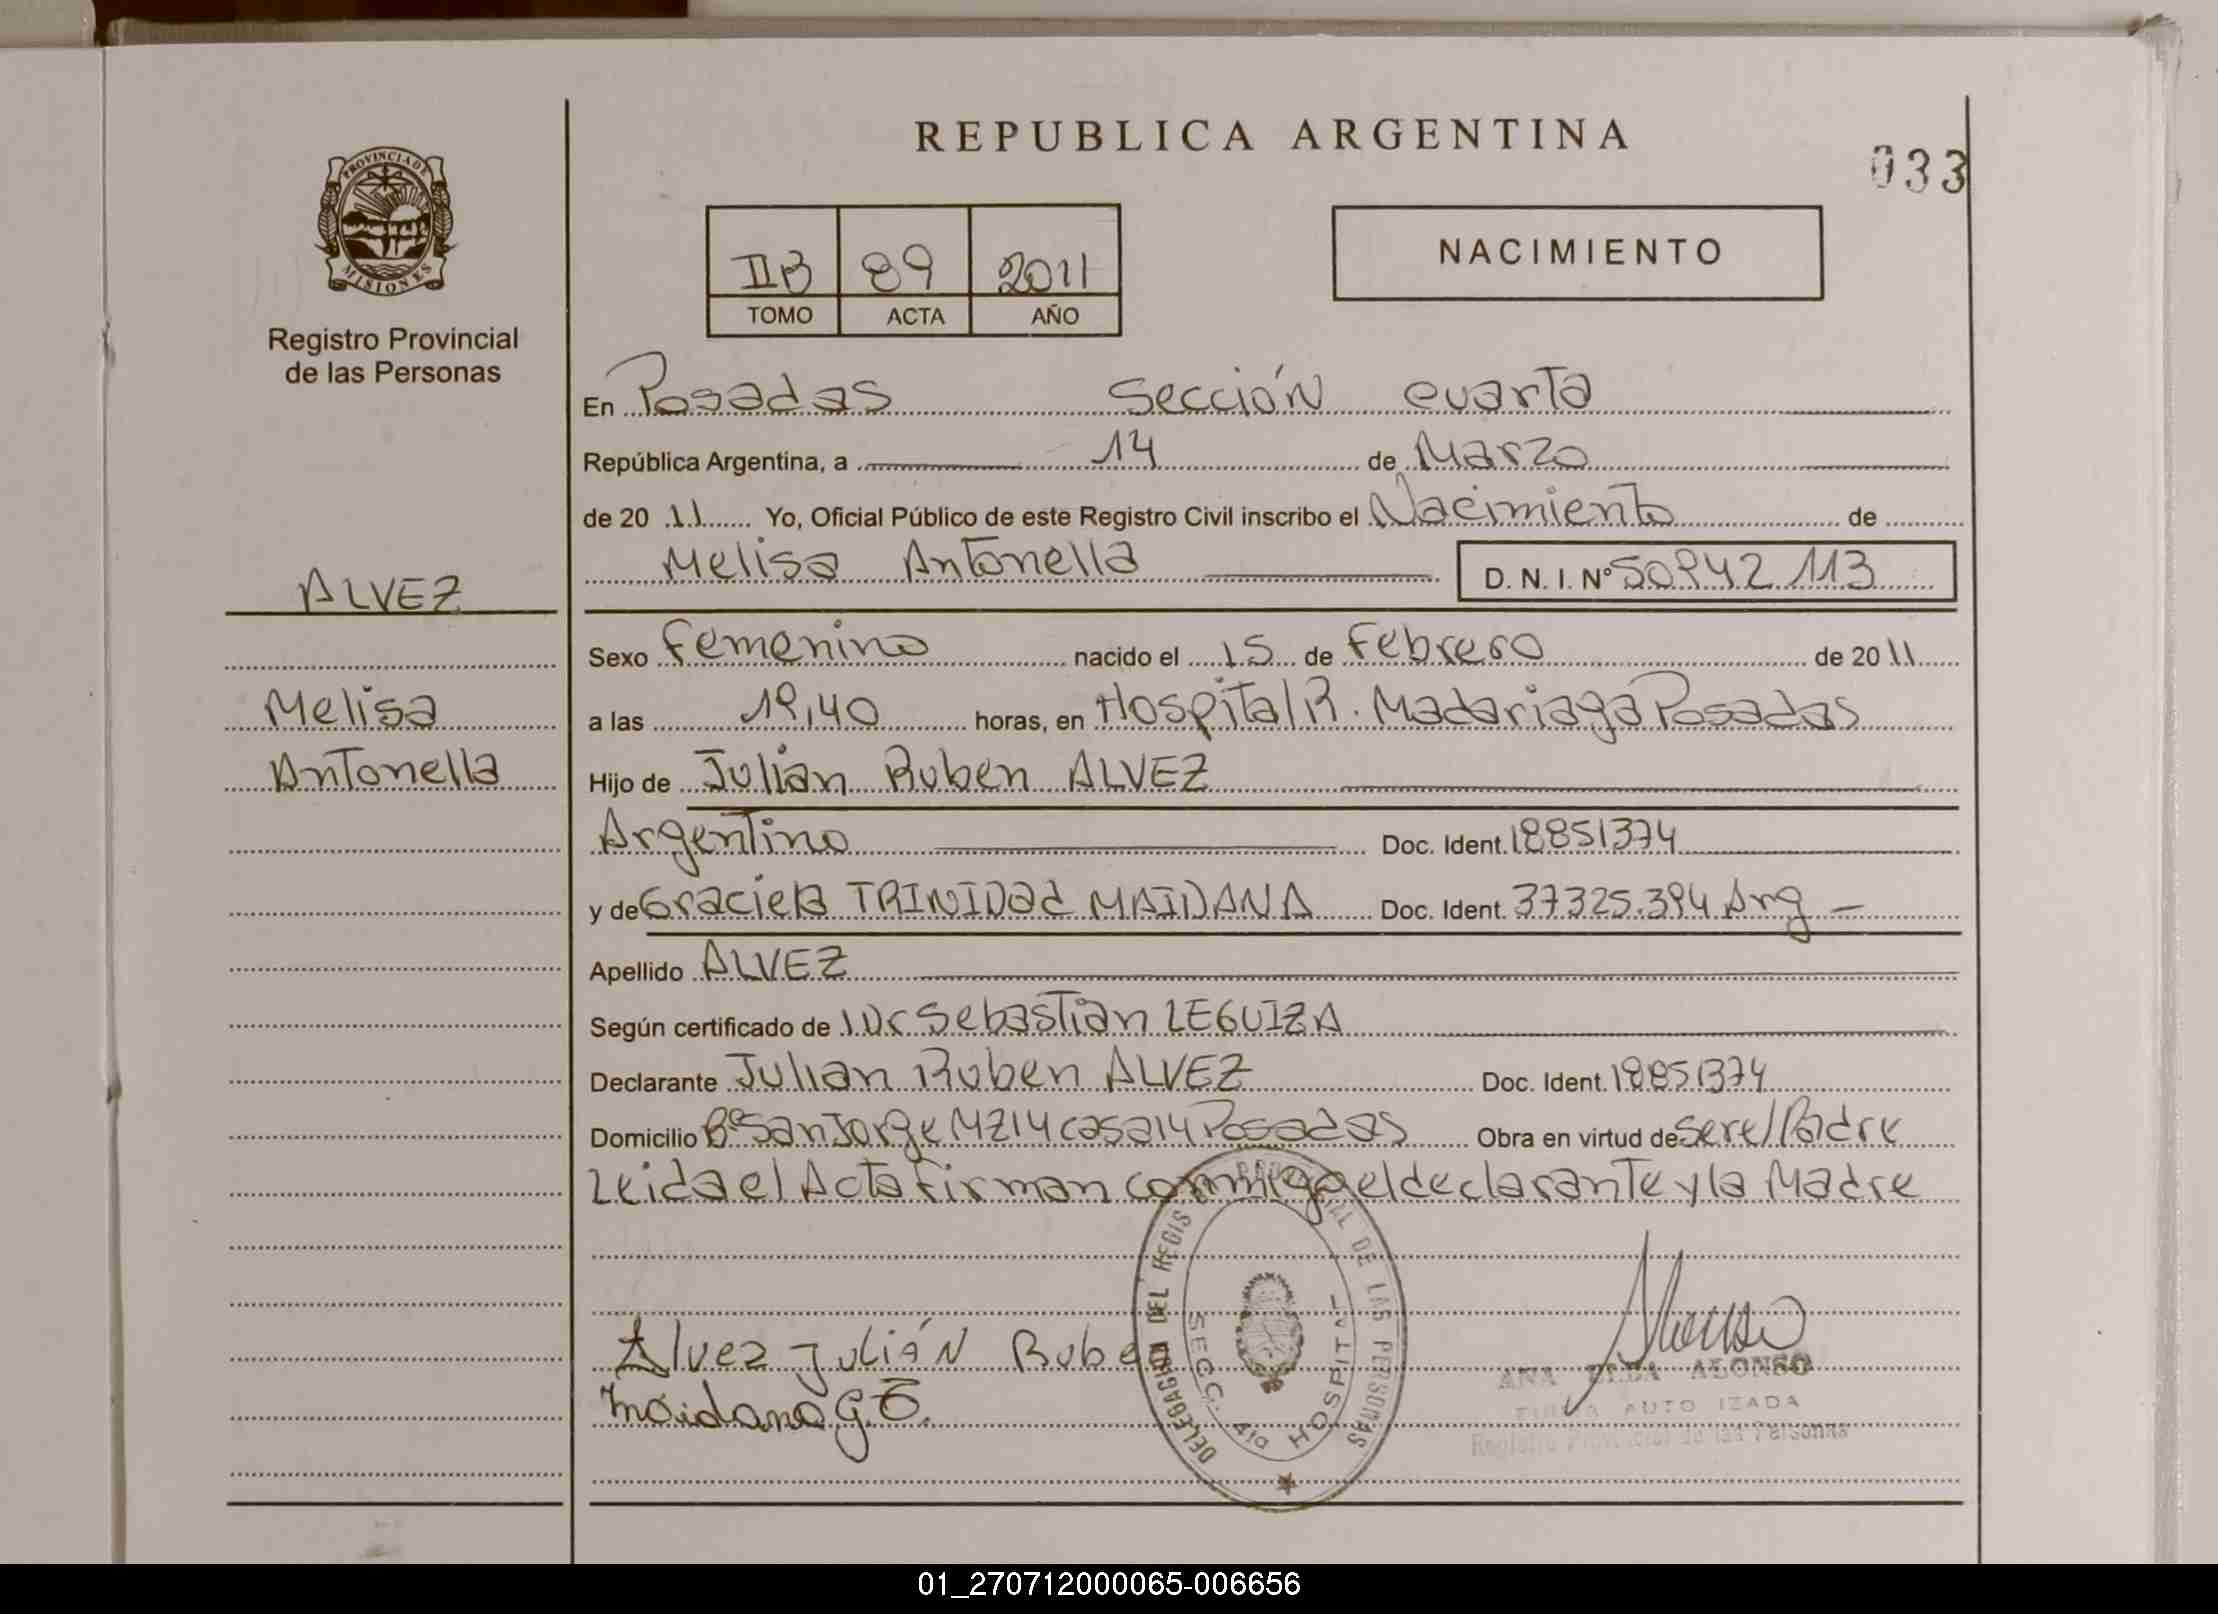 REPUBLICA ARGENTINA
033
PROVINCIA DE
MISIONES
Registro Provincial
de las Personas
IIB 89 2011
TOMO ACTA AÑO
NACIMIENTO
En Posadas Sección cuarta
República Argentina, a 14 de Marzo
de 20 11 Yo, Oficial Público de este Registro Civil inscribo el Nacimiento de
Melisa Antonella D. N. I. Nº 50942113
ALVEZ
Melisa
Antonella
Sexo Femenino nacido el 15 de Febrero de 20 11
a las 19,40 horas, en Hospital R. Madariaga Posadas
Hijo de Julián Ruben ALVEZ
Argentino Doc. Ident. 18851374
y de Graciela TRINIDAd MAIDANA Doc. Ident. 37325.394 Arg –
Apellido ALVEZ
Según certificado de Sebastián LEGUIZA
Declarante Julián Ruben ALVEZ Doc. Ident. 18851374
Domicilio Bº San Jorge MZ 14 casa 14 Posadas Obra en virtud de ser el Padre
Leida el Acta firman conmigo el declarante y la Madre
Alvez Julián Rube
Maidana G.T.
DELEGACION DEL REGIS PROVINCIAL DE LAS PERSONAS
SECC. 4ta HOSPITAL
ANA ELBA ALONSO
FIRMA AUTO IZADA
Registro Provincial de las Personas
01_270712000065-006656